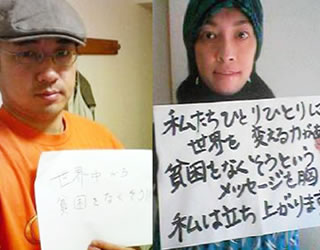 世界中から
貧困をなくそう!
私たちひとりひとりに
世界を変える力が
貧困をなくそうという
メッセージを胸
私は立ち上がります